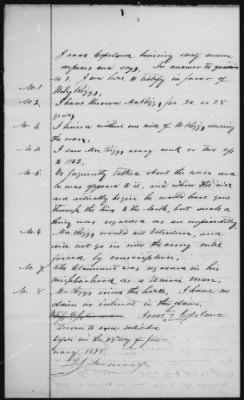 Isaac Copeland being duly sworn
deposes and says. In answer to question
No. 1. I am here to testify in favor of
Wiley Riggs.
No 2. I have known Mr Riggs for 20 or 25
years.
No. 3. I lived within one mile of Mr Riggs during
the war.
No 4. I saw Mr Riggs every week or two up
to 1863.
No. 5. We frequently talked about the war and
he was opposed to it, and when the war
had actually begun he would have gone
through the lines to the North, but such a
thing was regarded as an impossibility.
No. 6 Mr Riggs would not Volunteer, and
did not go in the army until
forced by conscription.
No. 7. The Claimant was regarded in his
neighborhood as a Union man.
No. 8. Mr Riggs owned the horse. I have no
claim or interest in this claim.
Isaac Copeland
Sworn to and subscribed
before me this day of Jan-
uary 1878.